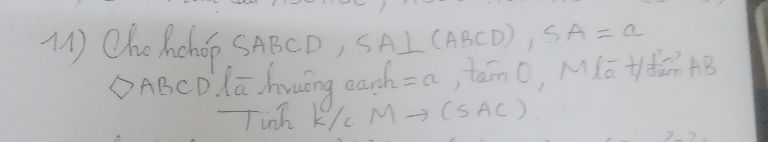 11) Cho hchóp SABCD, SA⊥(ABCD), SA = a
◇ABCD là hvuông cạnh = a, tâm O, M là t/điểm AB.
Tính k/c M → (SAC).